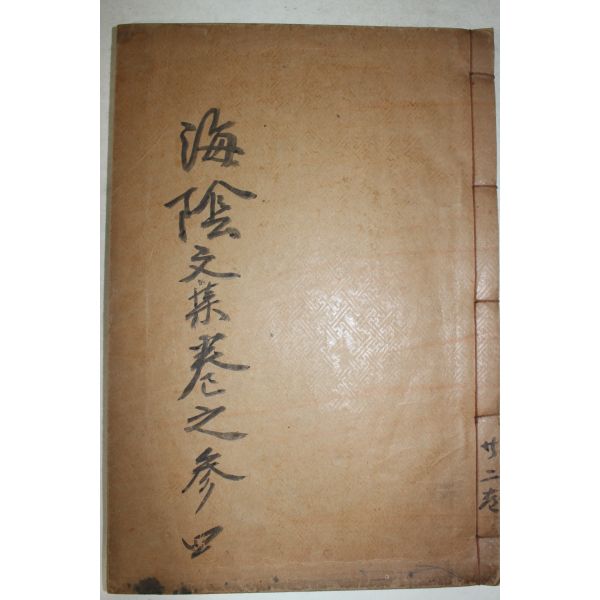 海陰文集卷之參四
廿二卷